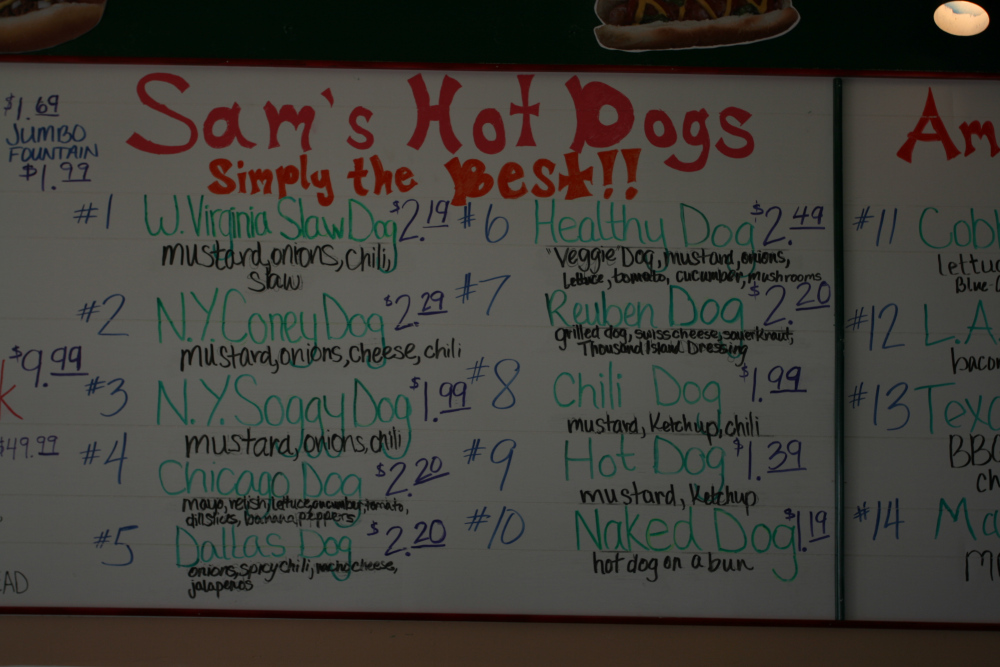 $1.69
JUMBO
FOUNTAIN
$1.99
$9.99
$49.99
Sam's Hot Dogs
Simply the Best!!
#1 W. Virginia Slaw Dog $2.19
mustard, onions, chili,
slaw
#2 N.Y Coney Dog $2.29
mustard, onions, cheese, chili
#3 N.Y. Soggy Dog $1.99
mustard, onions, chili
#4 Chicago Dog $2.20
mayo, relish, lettuce, cucumber, tomato,
dill slices, banana peppers
#5 Dallas Dog $2.20
onions, spicy chili, nacho cheese,
jalapenos
#6 Healthy Dog $2.49
"Veggie" Dog, mustard, onions,
lettuce, tomato, cucumber, mushrooms
#7 Reuben Dog $2.20
grilled dog, swiss cheese, sauerkraut,
Thousand Island Dressing
#8 Chili Dog $1.99
mustard, Ketchup, chili
#9 Hot Dog $1.39
mustard, Ketchup
#10 Naked Dog $1.19
hot dog on a bun
Am
#11 Cobb
lettuc
Blue
#12 L.A.
bacon
#13 Texa
BBQ
ch
#14 Ma